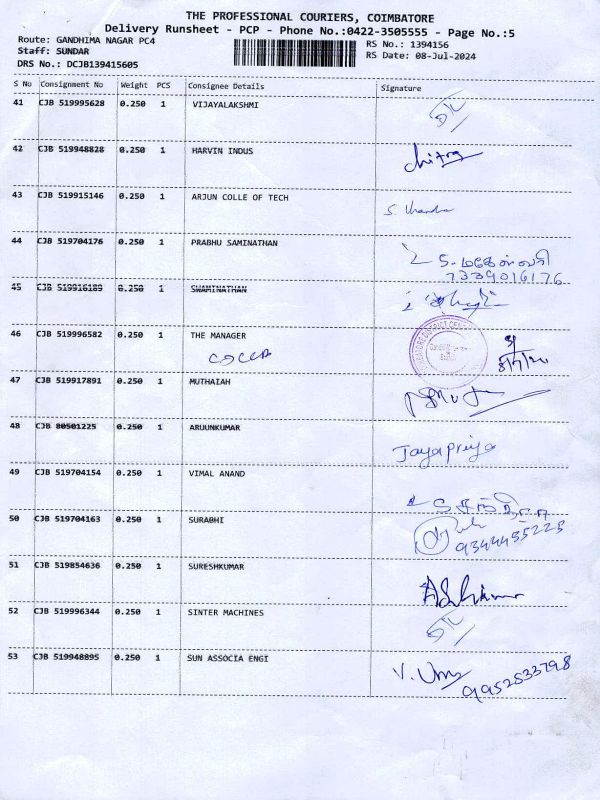 THE PROFESSIONAL COURIERS, COIMBATORE
Delivery Runsheet - PCP - Phone No.:0422-3505555 - Page No.:5
Route: GANDHIMA NAGAR PC4 RS No.: 1394156
Staff: SUNDAR RS Date: 08-Jul-2024
DRS No.: DCJB139415605
S No Consignment No Weight PCS Consignee Details Signature
41 CJB 519995628 0.250 1 VIJAYALAKSHMI
42 CJB 519948828 0.250 1 HARVIN INDUS Chitra
43 CJB 519915146 0.250 1 ARJUN COLLE OF TECH S. Chandra
44 CJB 519704176 0.250 1 PRABHU SAMINATHAN S. மகேஸ்வரி
7339016176
45 CJB 519916189 0.250 1 SWAMINATHAN
46 CJB 519996582 0.250 1 THE MANAGER
COCCB 8/7/24
47 CJB 519917891 0.250 1 MUTHAIAH
48 CJB 80501225 0.250 1 ARUUNKUMAR Jayapriya
49 CJB 519704154 0.250 1 VIMAL ANAND
50 CJB 519704163 0.250 1 SURABHI 9344455225
51 CJB 519854636 0.250 1 SURESHKUMAR
52 CJB 519996344 0.250 1 SINTER MACHINES
53 CJB 519948895 0.250 1 SUN ASSOCIA ENGI V. Uma
9952533798